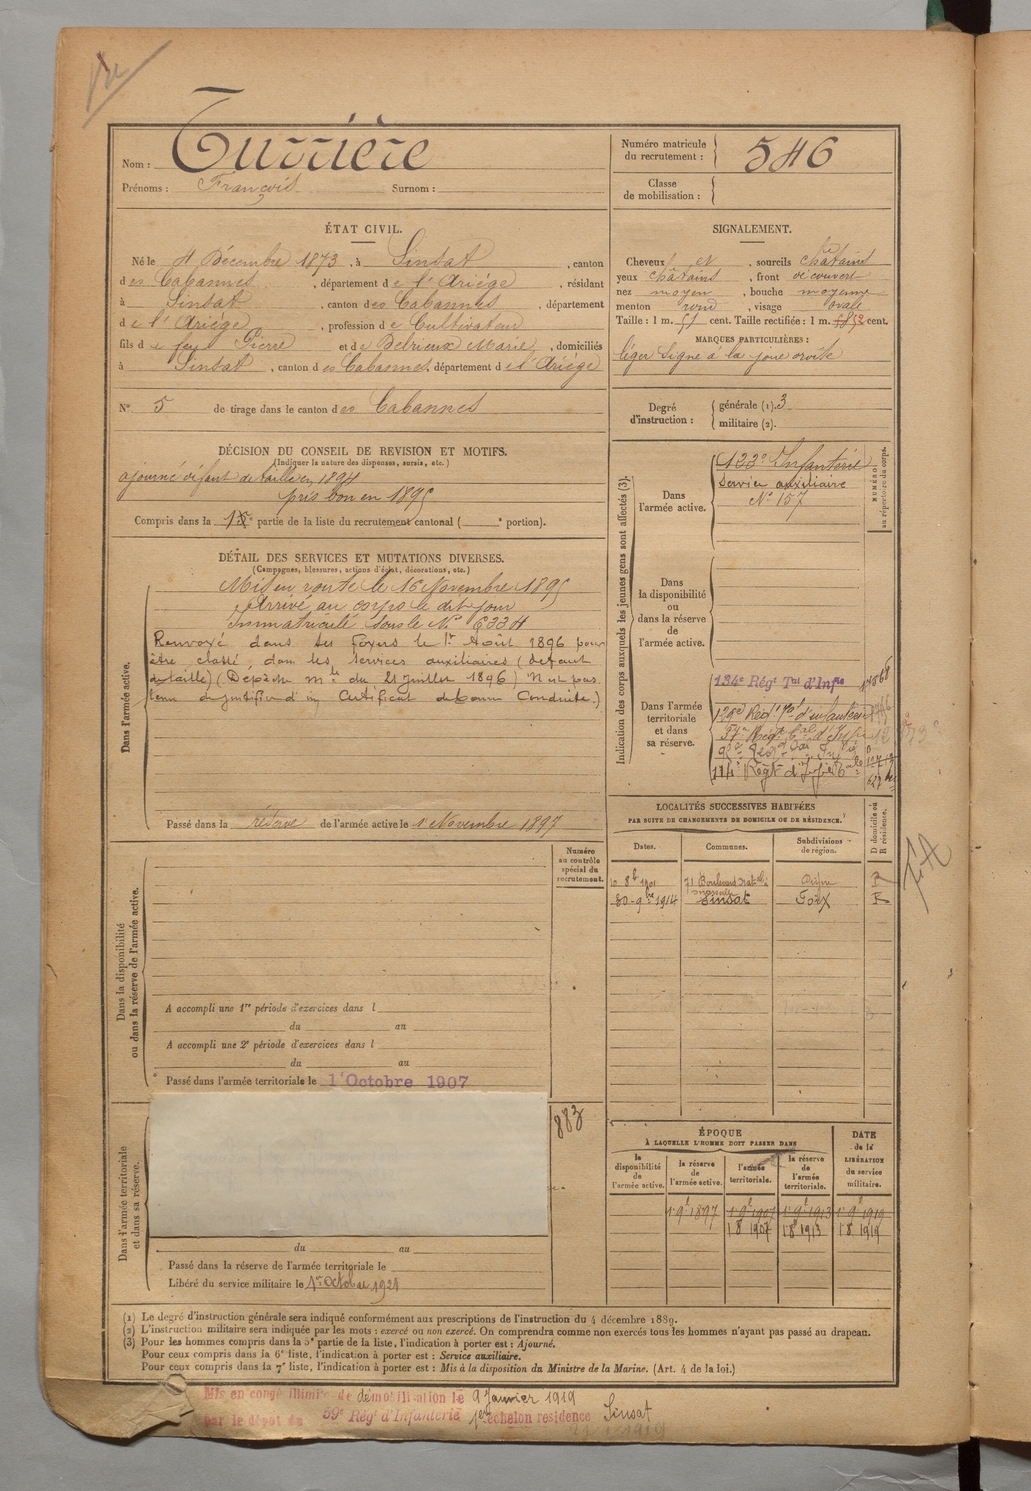 Nom : Turrière
Prénoms : François Surnom :
Numéro matricule du recrutement : 546
Classe de mobilisation :
ÉTAT CIVIL.
Né le 4 Décembre 1873, à Sinsat, canton
des Cabannes, département de l'Ariège, résidant
à Sinsat, canton des Cabannes, département
de l'Ariège, profession de Cultivateur
fils de feu Pierre et de Delrieux Marie, domiciliés
à Sinsat, canton des Cabannes, département de l'Ariège
N° 5 de tirage dans le canton des Cabannes
SIGNALEMENT.
Cheveux et, sourcils châtains
yeux châtains, front découvert
nez moyen, bouche moyenne
menton rond, visage ovale
Taille : 1 m. 51 cent. Taille rectifiée : 1 m. 52 cent.
MARQUES PARTICULIÈRES :
léger signe à la joue droite
Degré d'instruction : générale (1). 3
militaire (2).
DÉCISION DU CONSEIL DE REVISION ET MOTIFS.
(Indiquer la nature des dispenses, sursis, etc.)
ajourné défaut de taille en 1894
pris bon en 1895
Compris dans la partie de la liste du recrutement cantonal ( e portion).
DÉTAIL DES SERVICES ET MUTATIONS DIVERSES.
(Campagnes, blessures, actions d'éclat, décorations, etc.)
Dans l'armée active.
Mis en route le 16 Novembre 1895
Arrivé au corps le dit jour
Immatriculé sous le N° 6334
Renvoyé dans ses foyers le 1er Août 1896 pour
être classé dans les services auxiliaires (défaut
de taille) (Dépêche mlle du 21 juillet 1896) N'est pas
tenu de justifier d'un Certificat de bonne Conduite.)
Passé dans la réserve de l'armée active le 1 Novembre 1897
Indication des corps auxquels les jeunes gens sont affectés (3).
NUMÉRO au répertoire du corps.
Dans l'armée active.
123e Infanterie
Service auxiliaire
N° 157
Dans la disponibilité ou dans la réserve de l'armée active.
Dans l'armée territoriale et dans sa réserve.
134e Régt Tal d'Infie
129e Régt Tal d'infanterie
114e Régt d'Infie
LOCALITÉS SUCCESSIVES HABITÉES
PAR SUITE DE CHANGEMENTS DE DOMICILE OU DE RÉSIDENCE.
D domicile ou R résidence.
Dates. Communes. Subdivisions de région.
10 8bre 1901 71 Boulevard R
30-9bre 1914 Sinsat Foix R
Dans la disponibilité ou dans la réserve de l'armée active.
Numéro au contrôle spécial du recrutement.
A accompli une 1re période d'exercices dans l
du au
A accompli une 2e période d'exercices dans l
du au
Passé dans l'armée territoriale le 1er Octobre 1907
Dans l'armée territoriale et dans sa réserve.
883
du au
Passé dans la réserve de l'armée territoriale le
Libéré du service militaire le 1er Octobre 1921
ÉPOQUE
À LAQUELLE L'HOMME DOIT PASSER DANS
DATE de la LIBÉRATION du service militaire.
la disponibilité de l'armée active. la réserve de l'armée active. l'armée territoriale. la réserve de l'armée territoriale.
1 9e 1897 1 9e 1907 1 9e 1913 1 9e 1919
1 8 1907 1 8 1913 1 8 1919
(1) Le degré d'instruction générale sera indiqué conformément aux prescriptions de l'instruction du 4 décembre 1889.
(2) L'instruction militaire sera indiquée par les mots : exercé ou non exercé. On comprendra comme non exercés tous les hommes n'ayant pas passé au drapeau.
(3) Pour les hommes compris dans la 5e partie de la liste, l'indication à porter est : Ajourné.
Pour ceux compris dans la 6e liste, l'indication à porter est : Service auxiliaire.
Pour ceux compris dans la 7e liste, l'indication à porter est : Mis à la disposition du Ministre de la Marine. (Art. 4 de la loi.)
Mis en congé illimité de démobilisation le 9 Janvier 1919
par le dépôt du 59e Régt d'Infanterie 1er échelon résidence Sinsat